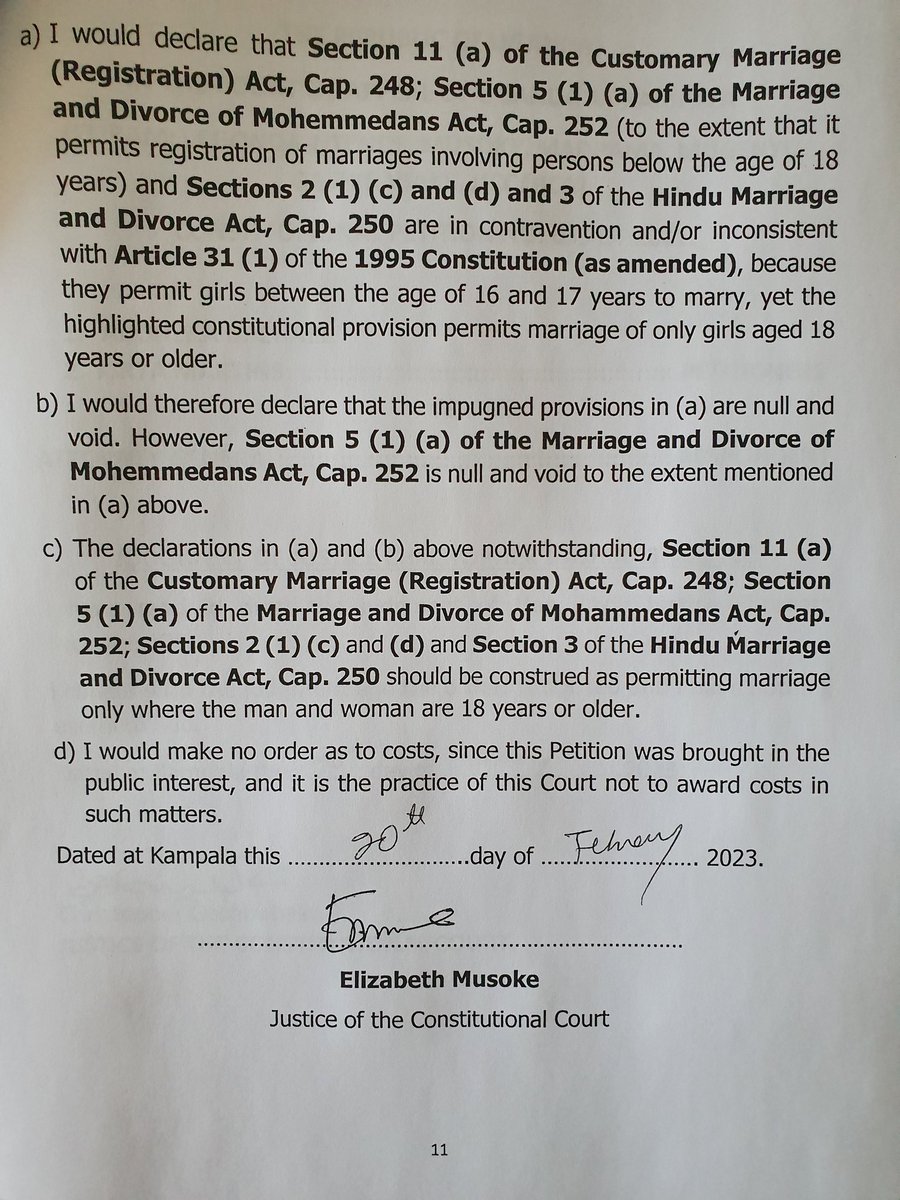 a) I would declare that Section 11 (a) of the Customary Marriage
(Registration) Act, Cap. 248; Section 5 (1) (a) of the Marriage
and Divorce of Mohemmedans Act, Cap. 252 (to the extent that it
permits registration of marriages involving persons below the age of 18
years) and Sections 2 (1) (c) and (d) and 3 of the Hindu Marriage
and Divorce Act, Cap. 250 are in contravention and/or inconsistent
with Article 31 (1) of the 1995 Constitution (as amended), because
they permit girls between the age of 16 and 17 years to marry, yet the
highlighted constitutional provision permits marriage of only girls aged 18
years or older.
b) I would therefore declare that the impugned provisions in (a) are null and
void. However, Section 5 (1) (a) of the Marriage and Divorce of
Mohemmedans Act, Cap. 252 is null and void to the extent mentioned
in (a) above.
c) The declarations in (a) and (b) above notwithstanding, Section 11 (a)
of the Customary Marriage (Registration) Act, Cap. 248; Section
5 (1) (a) of the Marriage and Divorce of Mohammedans Act, Cap.
252; Sections 2 (1) (c) and (d) and Section 3 of the Hindu Marriage
and Divorce Act, Cap. 250 should be construed as permitting marriage
only where the man and woman are 18 years or older.
d) I would make no order as to costs, since this Petition was brought in the
public interest, and it is the practice of this Court not to award costs in
such matters.
Dated at Kampala this 20th day of February 2023.
Elizabeth Musoke
Justice of the Constitutional Court
11